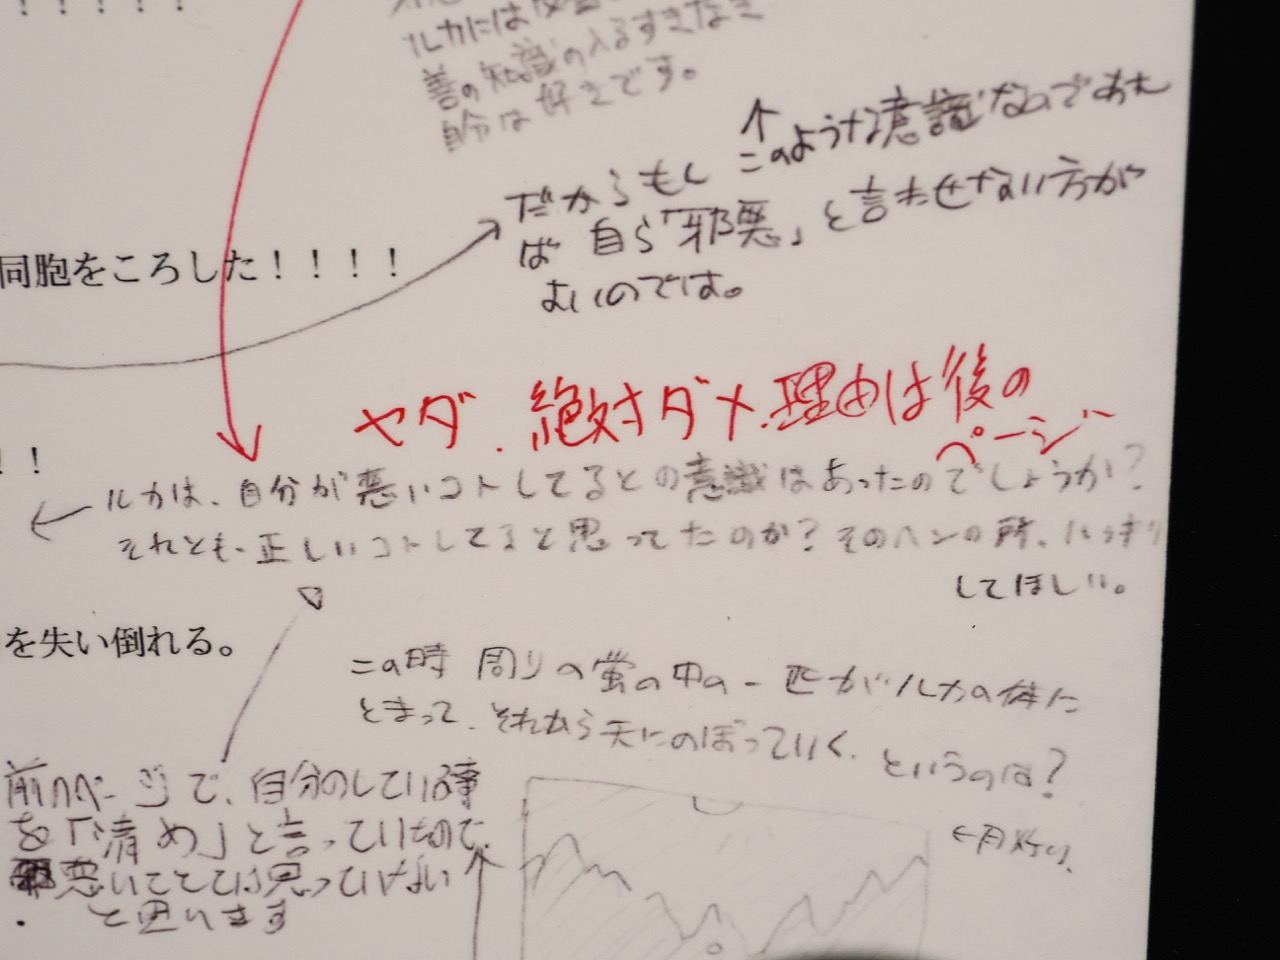 ！！！！！
ルカには
善の知識の入るすきなき
自分は好きです。
↑このような意識ないであれ
だからもし
ば 自ら「邪悪」と言わせない方が
よいのでは。
同胞をころした！！！！
ヤダ．絶対ダメ．理由は後の
ページ
！！
ルカは、自分が悪いコトしてるとの意識はあったのでしょうか？
それとも、正しいコトしてると思ってたのか？そのヘンの所、ハッキリ
してほしい。
を失い倒れる。
この時 周りの蛍の中の一匹がルカの体に
とまって、それから天にのぼっていく、というのは？
前のページで、自分のしている事
を「清め」と言っているので、
悪いことでは思っていない
と思います
←月